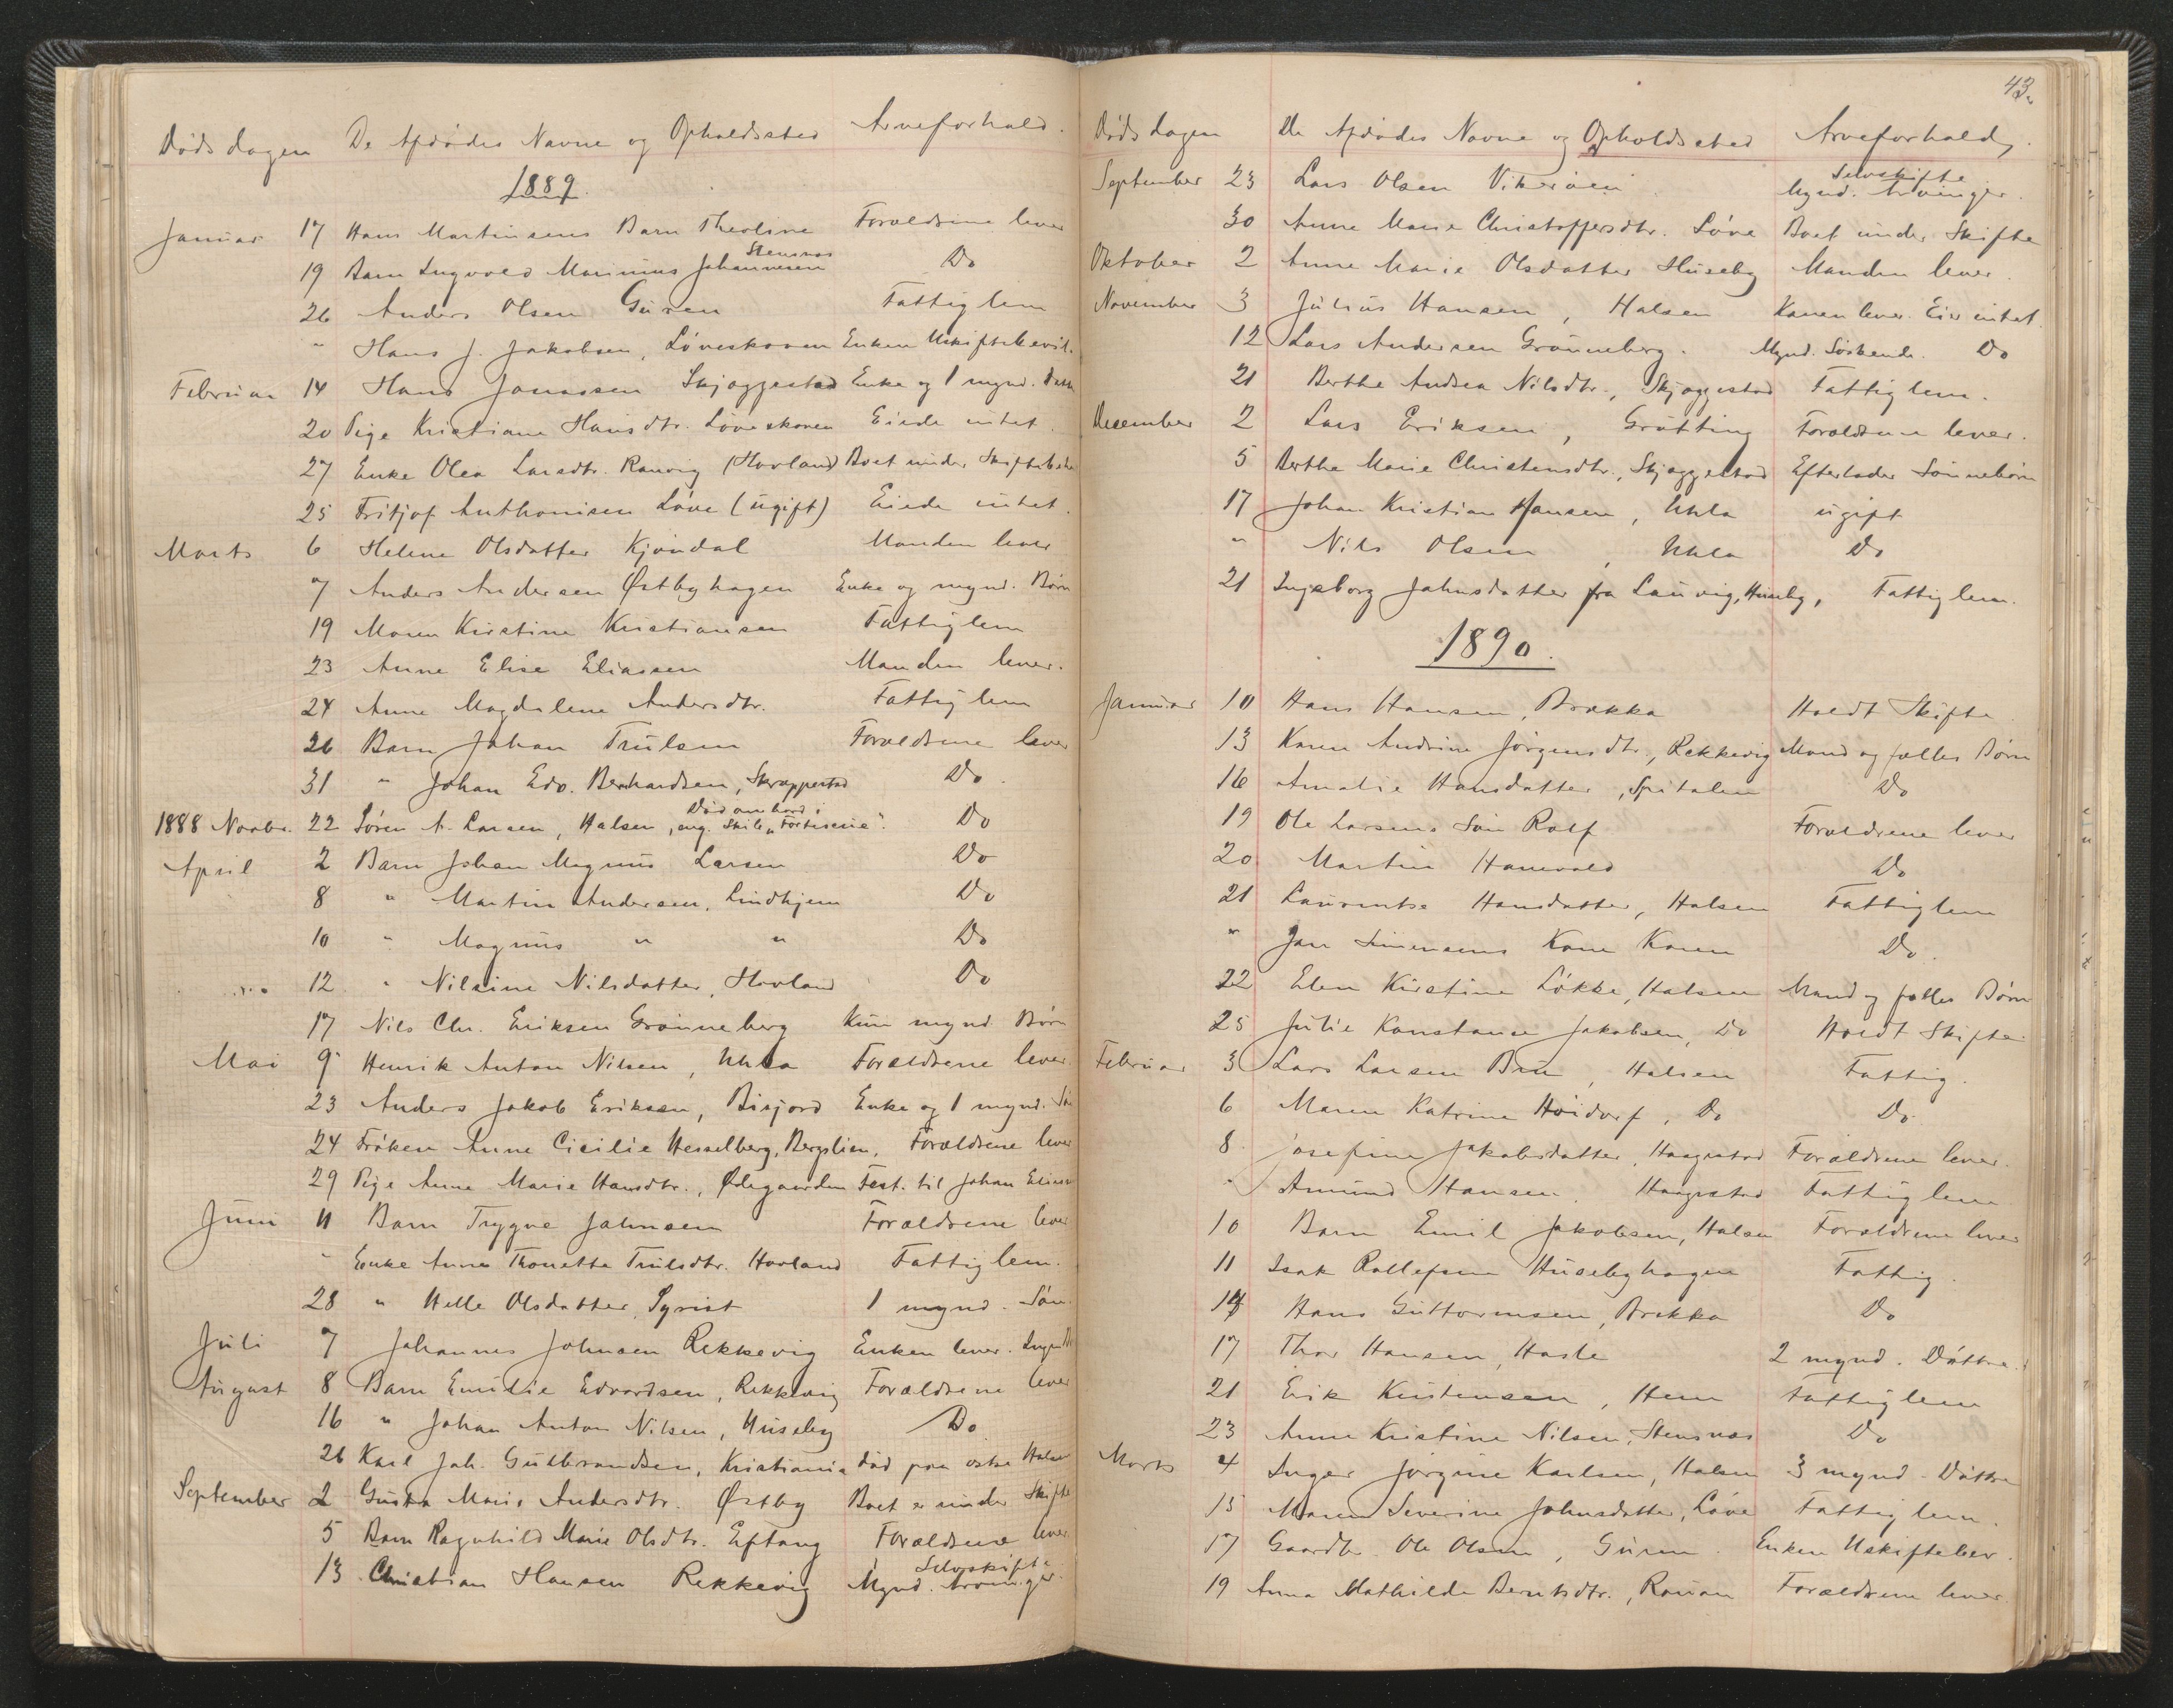 Dødsdagen De Afdødes Navne og Opholdssted Arveforhold.
1889.
Januar 17 Hans Martinsens Barn Theoline Forældrene lever
Stensnæs
19 Barn Ingvald Marinius Johannesen Do
26 Anders Olsen Guren Fattiglem
" Hans J. Jakobsen, Løveskoven Enken Uskiftebevil.
Februar 14 Hans Jonassen Skjæggestad Enke og 1 mynd. Datt
20 Pige Kristiane Hansdtr. Løveskoven Eiede intet.
27 Enke Olea Larsdtr. Rauvig (Hovland) Boet under Skifteb
25 Fritjof Anthonisen Løve (ugift) Eiede intet.
Marts 6 Helene Olsdatter Kjøndal Manden lever
7 Anders Andersen Østbyhagen Enke og mynd. Børn
19 Maren Kirstine Kristiansen Fattiglem
23 Anne Elise Eliassen Manden lever.
24 Anne Magdalene Andersdtr. Fattiglem
26 Barn Johan Trulsen Forældrene lever
31 " Johan Edv. Bernhardsen, Skræppestad Do.
Død ombord i
1888 Novbr. 22 Søren A. Larsen, Halsen, eng. Skib Do
April 2 Barn Johan Magnus Larsen Do
8 " Martin Andersen, Lindhjem Do
10 " Magnus " " Do
12 " Nilsine Nilsdatter, Hovland Do
17 Nils Chr. Eriksen Grønneberg Kun mynd. Børn
Mai 9 Henrik Anton Nilsen, Ula Forældrene lever
23 Anders Jakob Eriksen, Bisjord Enke og 1 mynd. Søn
24 Frøken Anne Cicilie Hesselberg, Bergslien, Forældrene lever
29 Pige Anne Marie Hansdtr., Ødegaarden Test. til Johan Eliasen
Juni 11 Barn Trygve Johnsen Forældrene lever
" Enke Anne Thonette Trulsdtr. Hovland Fattiglem.
28 " Helle Olsdatter, Syrist 1 mynd. Søn.
Juli 7 Johannes Johnsen Rekkevig Enken lever.
August 8 Barn Emilie Edvardsen, Rekkevig Forældrene lever
16 " Johan Anton Nilsen, Huseby Do
26 Karl Joh. Gulbrandsen, Kristiania død paa østre Halsen
September 2 Gusta Marie Andersdtr. Østby Boet er under Skifte
5 Barn Ragnhild Marie Olsdtr. Eftang Forældrene lever
Selvskifte
13 Christian Hansen Rekkevig Mynd. Arvinger.
43.
Dødsdagen De Afdødes Navne og Opholdssted Arveforhold,
Selvskifte
September 23 Lars Olsen Vikerøen Mynd. Arvinger.
30 Anne Marie Christoffersdtr. Løve Boet under Skifte
Oktober 2 Anne Marie Olsdatter Huseby Manden lever.
November 3 Julius Hansen, Halsen Konen lever. Eier intet.
12 Lars Andersen Grønneberg. Mynd. Søskende. Do
21 Berthe Andrea Nilsdtr., Skjæggestad Fattiglem.
December 2 Lars Eriksen, Grøtting Forældrene lever.
5 Berthe Marie Christensdtr., Skjæggestad Efterlader Sønnebørn
17 Johan Kristian Hansen, Ula ugift
" Nils Olsen, Ula Do
21 Ingeborg Johnsdatter fra Laurvig, Huseby, Fattiglem.
1890.
Januar 10 Hans Hansen, Brekka Holdt Skifte
13 Karen Andrine Jørgensdtr., Rekkevig Mand og fælles Børn
16 Amalie Hansdatter, Spitalen Do
19 Ole Larsens Søn Rolf Forældrene lever
20 Martin Hanevold Do
21 Laurentse Hansdatter, Halsen Fattiglem
" Jan Simensens Kone Karen Do.
22 Elen Kirstine Løkke, Halsen Mand og fælles Børn
25 Julie Konstance Jakobsen, Do Holdt Skifte.
Februar 3 Lars Larsen Bru, Halsen Fattig.
6 Maren Katrine Høidorf, Do Do.
8. Josefine Jakobsdatter, Haagestad Forældrene lever.
" Amund Hansen. Haagestad Fattiglem
10 Barn Emil Jakobsen, Halsen Forældrene lever
11 Isak Rollefsen Husebyhagen Fattig.
14 Hans Guttormsen, Brekka Do
17 Thor Hansen, Hasle 2 mynd. Døttre.
21 Erik Kristensen, Hem Fattiglem
23 Anne Kristine Nilsen, Stensnæs Do
Marts 4 Inger Jørgine Karlsen, Halsen 3 mynd. Døttre
15 Maren Severine Johnsdatter, Løve Fattiglem.
17 Gaardbr. Ole Olsen, Guren Enken Uskiftebev.
19 Anna Mathilde Berntsdtr., Rauan Forældrene lever.